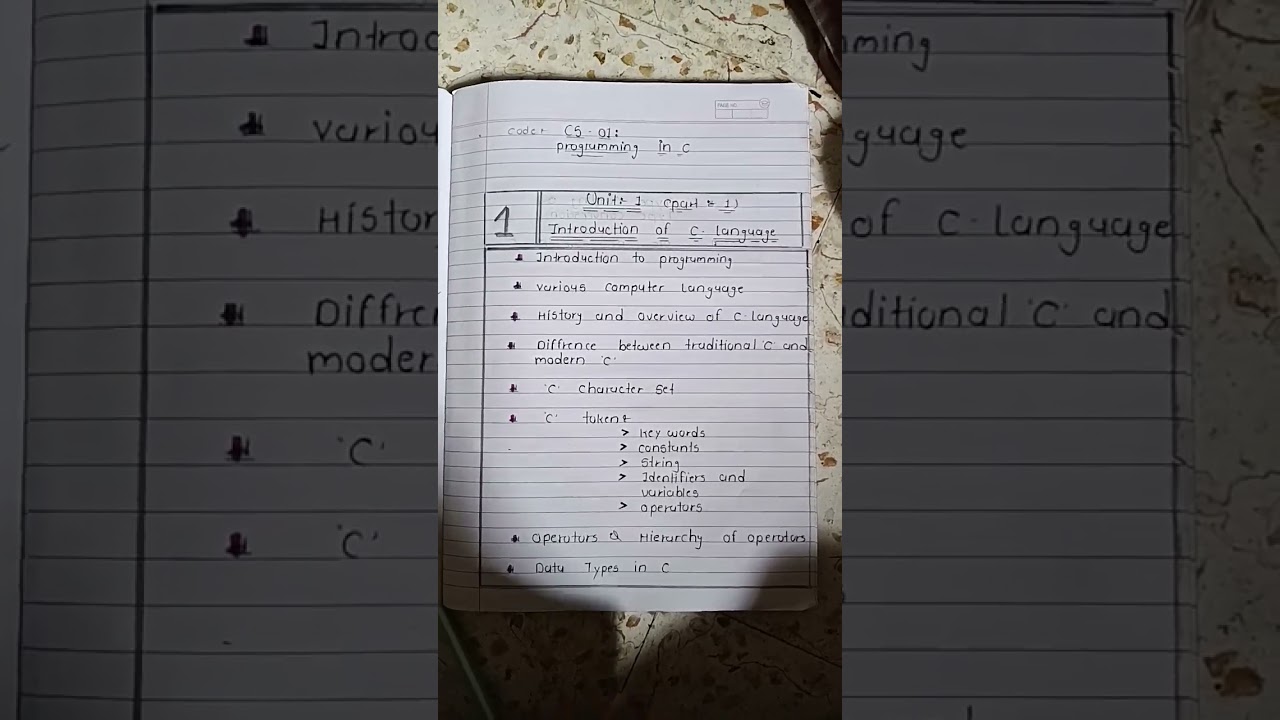 PAGE NO.
Coder CS-01:
programming in C
Unit:- 1 (part :- 1)
1
Introduction of C-language
Introduction to programming
Various computer language
History and overview of C-language
Diffrence between traditional 'C' and
modern 'C'
'C' Character Set
'C' token:
> Key words
> constants
> String
> Identifiers and
variables
> operators
operators & Hierarchy of operators
Data Types in C